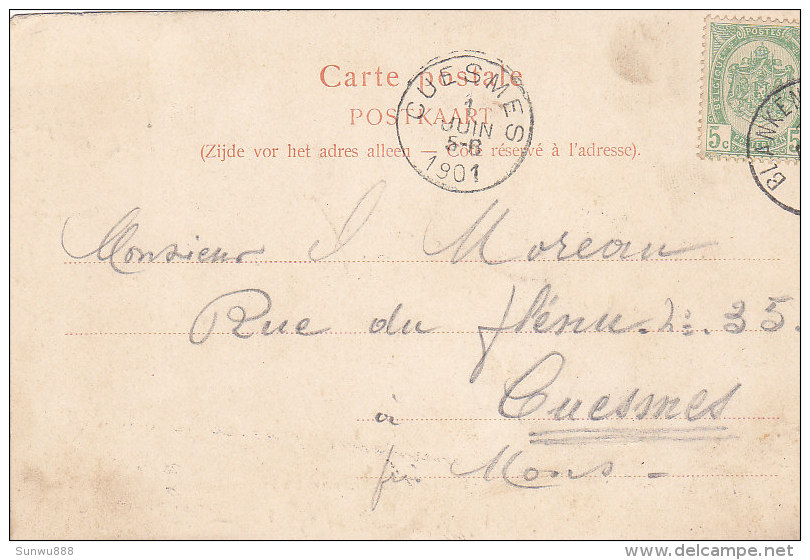 Carte postale
POSTKAART
(Zijde vor het adres alleen — Côté réservé à l'adresse).
CUESMES
1
JUIN
5-6
1901
BELGIQUE POSTES
5c 5
BLANKEN
Monsieur J. Moreau
Rue du flénu. No. 35.
à Cuesmes
près Mons -
Sunwu888
www.delcampe.net